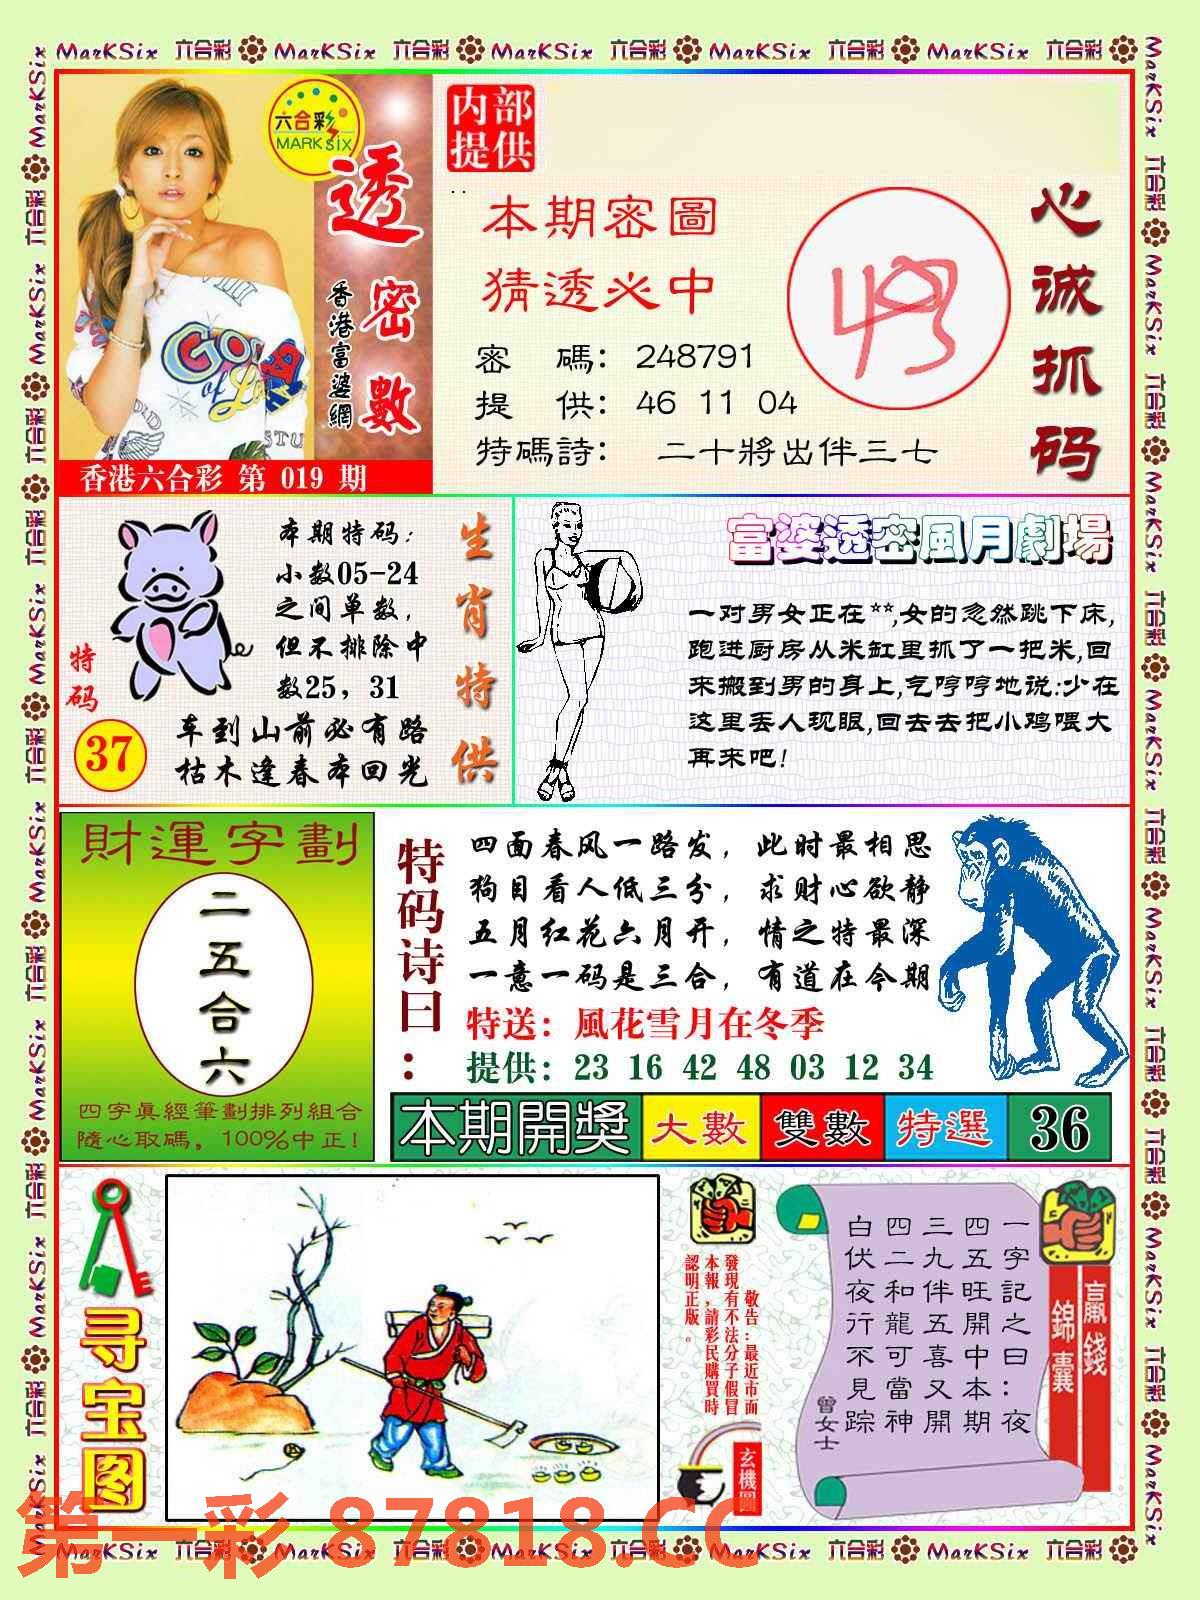 MarKSix 六合彩 MarKSix 六合彩 MarKSix 六合彩 MarKSix 六合彩 MarKSix 六合彩
六合彩
MARK SIX
透密數
香港富婆網
香港六合彩 第 019 期
内部
提供
本期密圖
猜透必中
密 碼: 248791
提 供: 46 11 04
特碼詩: 二十將出伴三七
心诚抓码
本期特码:
小数05-24
之间单数,
但不排除中
数25, 31
车到山前必有路
枯木逢春本回光
特码
37
生肖特供
富婆透密風月劇場
一对男女正在**,女的忽然跳下床,
跑进厨房从米缸里抓了一把米,回
来搬到男的身上,气哼哼地说:少在
这里丢人现眼,回去去把小鸡喂大
再来吧!
財運字劃
二
五
合
六
四字眞經筆劃排列組合
隨心取碼, 100%中正!
特码诗曰:
四面春风一路发, 此时最相思
狗目看人低三分, 求财心欲静
五月红花六月开, 情之特最深
一意一码是三合, 有道在今期
特送: 風花雪月在冬季
提供: 23 16 42 48 03 12 34
本期開獎 大數 雙數 特選 36
寻宝图
敬告:最近市面
發現有不法分子假冒
本報,請彩民購買時
認明正版。
玄機圖
一字記之曰:夜
四五旺開中本期
三九伴五喜又開
四二和龍可當神
白伏夜行不見踪
曾女士
贏錢
錦囊
第一彩 87818.CC
MarKSix 六合彩 MarKSix 六合彩 MarKSix 六合彩 MarKSix 六合彩 MarKSix 六合彩